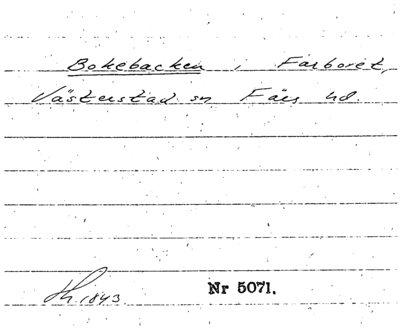 Bokebacken i Farboret,
Västerstad sn Färs hd.
Hh. 1843
Nr 5071.